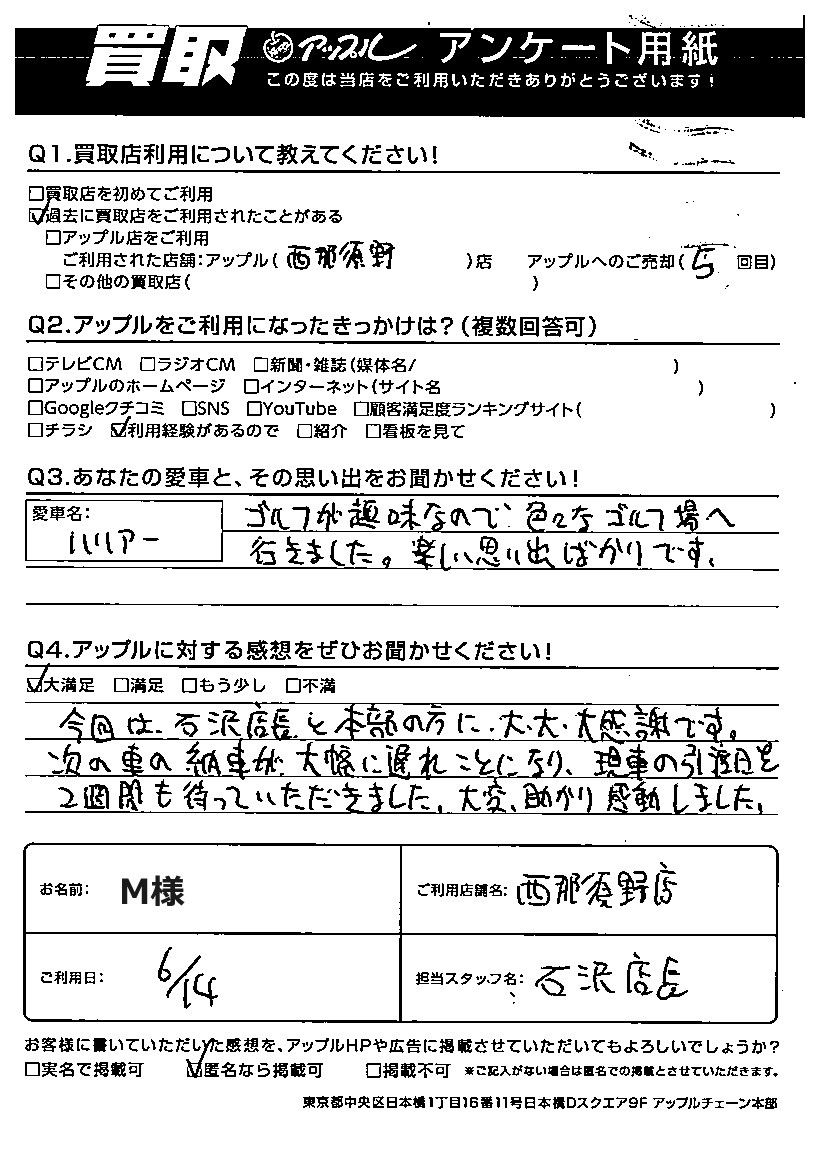 買取 アップル アンケート用紙
この度は当店をご利用いただきありがとうございます!
Q1.買取店利用について教えてください!
□買取店を初めてご利用
☑過去に買取店をご利用されたことがある
□アップル店をご利用
ご利用された店舗:アップル(西那須野)店 アップルへのご売却(5回目)
□その他の買取店( )
Q2.アップルをご利用になったきっかけは?(複数回答可)
□テレビCM □ラジオCM □新聞・雑誌(媒体名/ )
□アップルのホームページ □インターネット(サイト名 )
□Googleクチコミ □SNS □YouTube □顧客満足度ランキングサイト( )
□チラシ ☑利用経験があるので □紹介 □看板を見て
Q3.あなたの愛車と、その思い出をお聞かせください!
愛車名:
ハリアー
ゴルフが趣味なので色々なゴルフ場へ
行きました。楽しい思い出ばかりです。
Q4.アップルに対する感想をぜひお聞かせください!
☑大満足 □満足 □もう少し □不満
今回は、石沢店長と本部の方に、大・大・大感謝です。
次の車の納車が、大幅に遅れことになり、現車の引渡日を
2週間も待っていただきました。大変、助かり感動しました。
お名前: M様
ご利用店舗名: 西那須野店
ご利用日: 6/14
担当スタッフ名: 石沢店長
お客様に書いていただいた感想を、アップルHPや広告に掲載させていただいてもよろしいでしょうか?
□実名で掲載可 ☑匿名なら掲載可 □掲載不可 ※ご記入がない場合は匿名での掲載とさせていただきます。
東京都中央区日本橋1丁目16番11号日本橋Dスクエア9F アップルチェーン本部